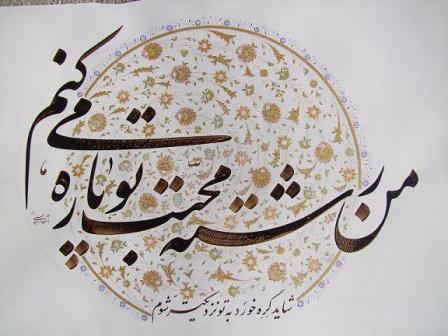 من رشته محبت تو پاره می کنم
شاید گره خورد به تو نزدیکتر شوم